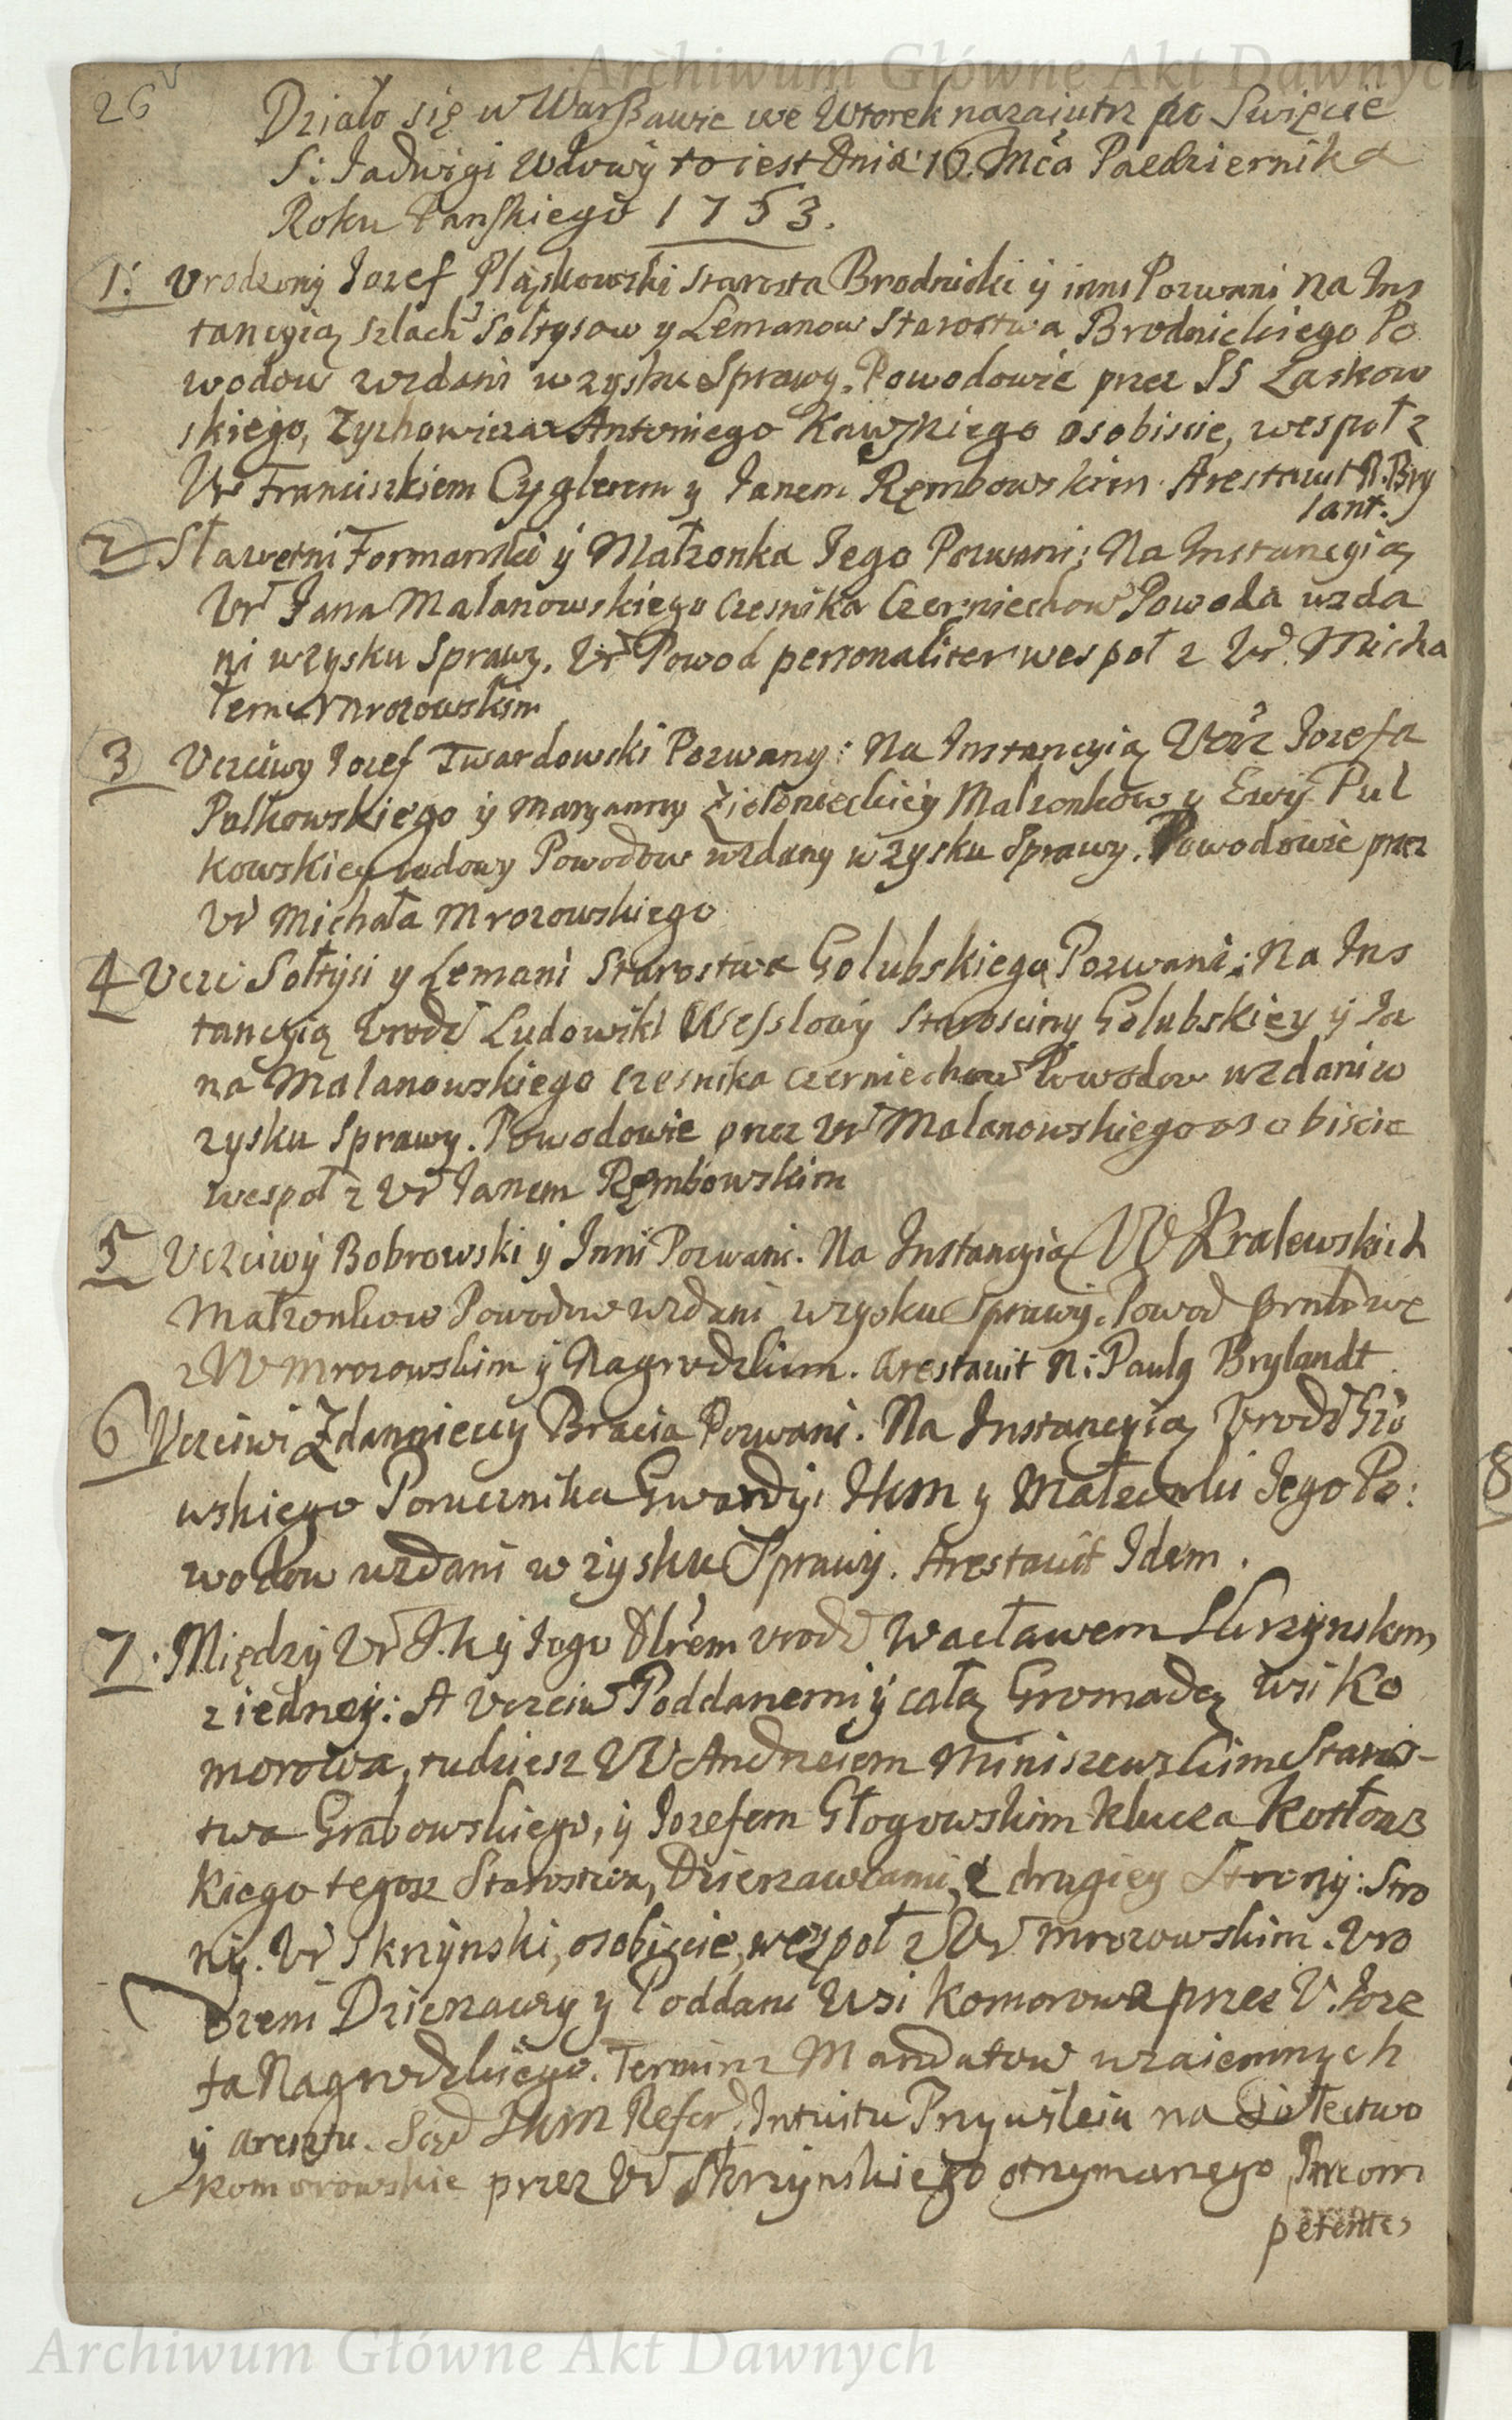 Archiwum Główne Akt Dawnych
26v
Działo się w Warszawie we Wtorek nazaiutrz po Swięcie
S: Jadwigi Wdowy to iest Dnia 16. Mca Pazdziernika
Roku Panskiego 1753.
1: Urodzony Jozef Pląskowski Starosta Brodnicki y inni Pozwani Na Ins
tancyią szlach Sołtysow y Lemanow Starostwa Brodnickiego Po
wodow wzdani w zysku Sprawy. Powodowie przez SS Laskow
skiego, Zychowicza Antoniego osobiscie, wespoł z
Ur Franciszkiem Cyglerem y Janem Rębowskim. Arestavit N. Bry
lant.
2 Sławetni Formanski y Małzonka Jego Pozwani; Na Instancyią
Ur Jana Malanowskiego Czesnika Czerniechow Powoda wzda
ni w zysku Sprawy. Ur Powod personaliter wespoł z Ur. Micha
łem Mrozowskim
3 Uczciwy Jozef Twardowski Pozwany: Na Instancyią Jozefa
Pułkowskiego y Maryanny Małzonkow y Ewy Puł
kowskiey wdowy Powodow wzdany w zysku Sprawy. Powodowie przez
Ur Michała Mrozowskiego
4 Uczci Sołtysi y Lemani Starostwa Golubskiego Pozwani: Na Ins
tancyią Urodz Ludowiki Wesslowy Starosciny Golubskiey y Ja
na Malanowskiego Czesnika Czerniechow Powodow wzdani w
zysku Sprawy. Powodowie przez Ur Malanowskiego osobiscie
wespoł z Ur Janem Rębowskim
5 Uczciwy Bobrowski y Inni Pozwani. Na Instancyią W Kralewskich
Małzonkow Powodow wzdani w zysku Sprawy. Powod
z W Mrozowskim y Nagrodzkim. Arestavit N: Paulg Brylandt
6 Uczciwi Zdanniccy Bracia Pozwani. Na Instancyią Urodz
wskiego Porucznika Gwardyi JKM y Małzonki Jego Po:
wodow wzdani w zysku Sprawy. Arestavit Idem.
7. Między Ur J.K y Jego urodz Wacławem Skrzynskim
z iedney: A Uczciw Poddanemi y całą Gromadą wsi Ko
morowa, tudziesz W Andrzeiem Miniszewskim Staros-
twa Grabowskiego, y Jozefem Głogowskim Klucza Kotłows
kiego tegosz Starostwa, Dzierzawcami, z drugiey Strony: Stro
ny. Ur Skrzynski, osobiscie, wespoł z Ur Mrozowskim. Uro
dzeni Dzierzawcy y Poddani Wsi Komorowa przez U. Joze
fa Nagrodzkiego. Termin z Mandatow wzaiemnych
y aresztu. Sąd JKM Refer. Intuitu Przywileiu na Sołectwo
Komorowskie przez Ur Skrzynskiego otrzymanego Incom
petentis
Archiwum Główne Akt Dawnych